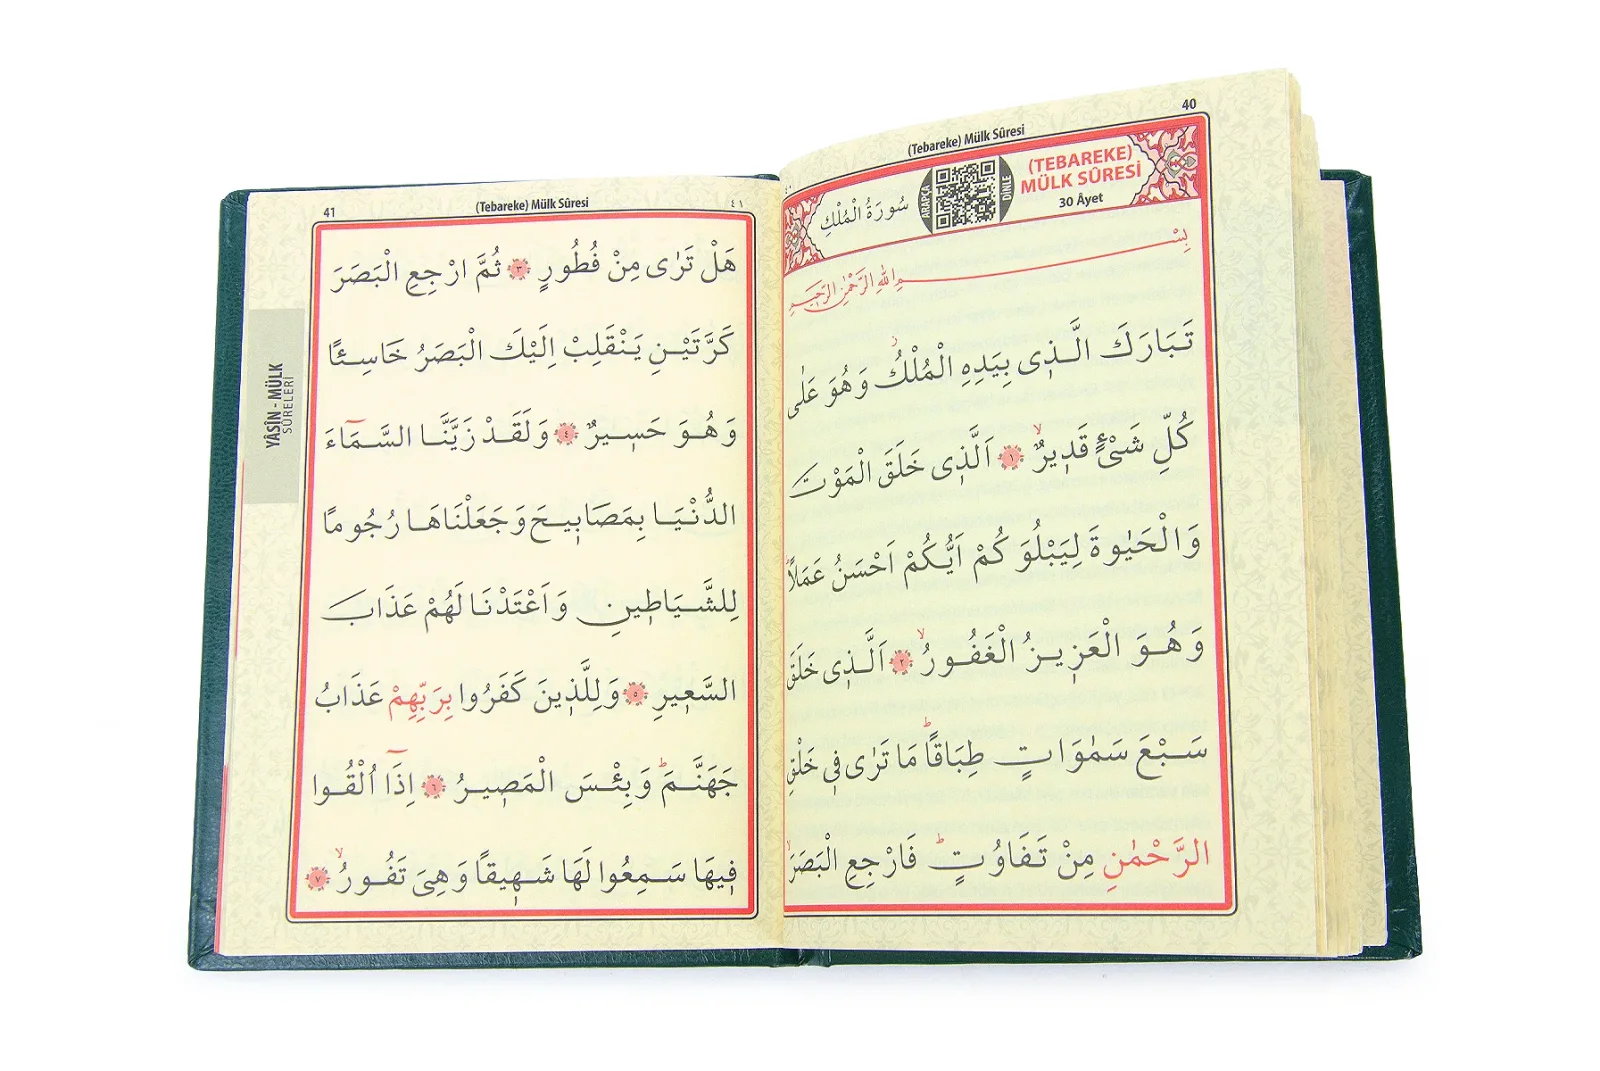 40
(Tebareke) Mülk Sûresi
(TEBAREKE)
MÜLK SÛRESİ
30 Âyet
DİNLE
ARAPÇA
سُورَةُ الْمُلْكِ
بِسْمِ اللهِ الرَّحْمٰنِ الرَّح۪يمِ
تَبَارَكَ الَّذ۪ى بِيَدِهِ الْمُلْكُۘ وَهُوَ عَلٰى
كُلِّ شَىْءٍ قَد۪يرٌۙ ﴿١﴾ اَلَّذ۪ى خَلَقَ الْمَوْتَ
وَالْحَيٰوةَ لِيَبْلُوَ كُمْ اَيُّكُمْ اَحْسَنُ عَمَلًاۜ
وَهُوَ الْعَز۪يزُ الْغَفُورُۙ ﴿٢﴾ اَلَّذ۪ى خَلَقَ
سَبْعَ سَمٰوَاتٍ طِبَاقًاۜ مَا تَرٰى ف۪ى خَلْقِ
الرَّحْمٰنِ مِنْ تَفَاوُتٍۜ فَارْجِعِ الْبَصَرَۙ
41
(Tebareke) Mülk Sûresi
٤١
هَلْ تَرٰى مِنْ فُطُورٍ ﴿٣﴾ ثُمَّ ارْجِعِ الْبَصَرَ
كَرَّتَيْنِ يَنْقَلِبْ اِلَيْكَ الْبَصَرُ خَاسِئًا
وَهُوَ حَس۪يرٌ ﴿٤﴾ وَلَقَدْ زَيَّنَّا السَّمَٓاءَ
الدُّنْيَا بِمَصَاب۪يحَ وَجَعَلْنَاهَا رُجُومًا
لِلشَّيَاط۪ينِ وَاَعْتَدْنَا لَهُمْ عَذَابَ
السَّع۪يرِ ﴿٥﴾ وَلِلَّذ۪ينَ كَفَرُوا بِرَبِّهِمْ عَذَابُ
جَهَنَّمَۜ وَبِئْسَ الْمَص۪يرُ ﴿٦﴾ اِذَٓا اُلْقُوا
ف۪يهَا سَمِعُوا لَهَا شَه۪يقًا وَهِىَ تَفُورُۙ ﴿٧﴾
YÂSÎN - MÜLK
SÛRELERİ